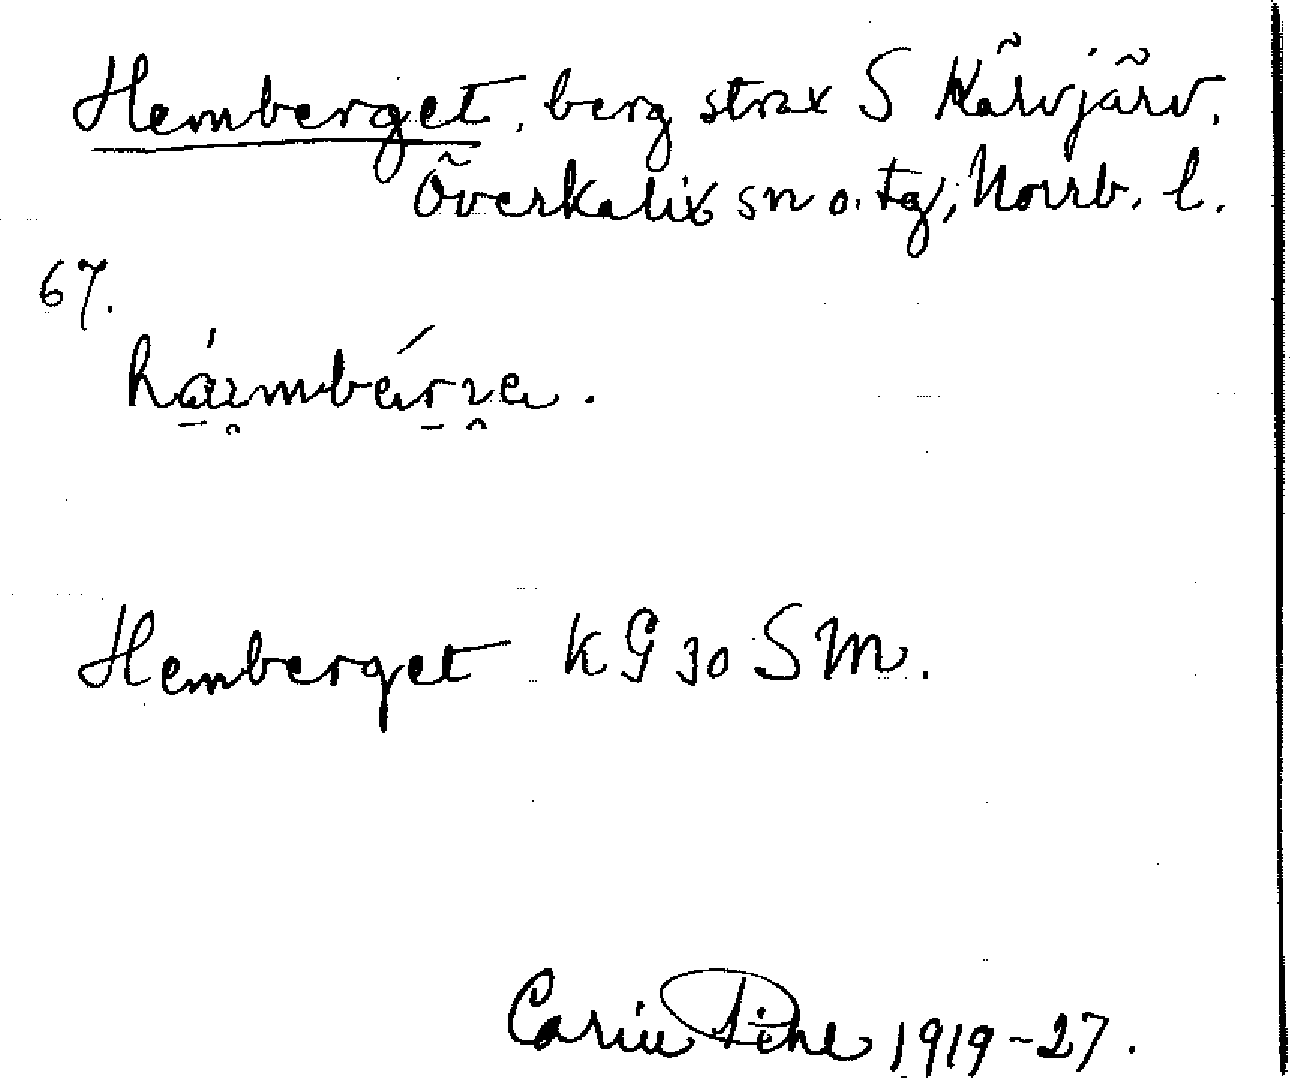 Hemberget, berg strax S Kärvjärv.
Överkalix sn o. tg, Norrb. l.
67.
Hemberget KG 30 SM.
Carin Pihl 1919-27.